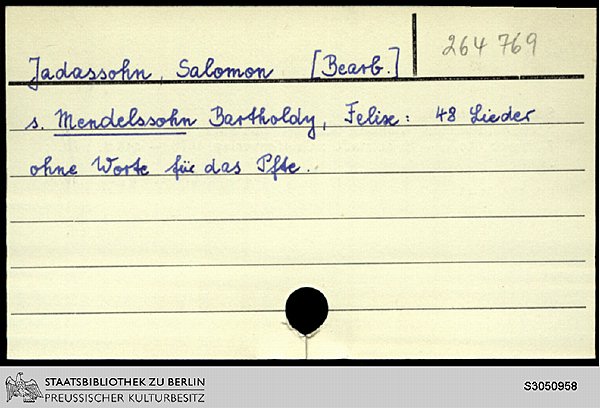 Jadassohn, Salomon [Bearb.]
264 769
s. Mendelssohn Bartholdy, Felix: 48 Lieder
ohne Worte für das Pfte.
STAATSBIBLIOTHEK ZU BERLIN
PREUSSISCHER KULTURBESITZ
S3050958